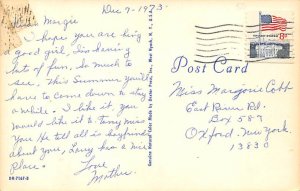 Dec 7-1973
Dear Margie
I hope you are being
a good girl, I'm having
lots of fun. So much to
see. This Summer you'll
have to come down to stay
a while. I like it, you
would like it to. Tiny miss
You. He tell all is boyfriend
about you, Larry has a nice
place.
Love
Mother
DR-7167-B
Genuine Natural Color Made by Dexter Press, Inc., West Nyack, N. Y., U.S.A.
Post Card
8c
Miss Marjorie Cobb
East River Rd.
Box 589
Oxford, New York
13830